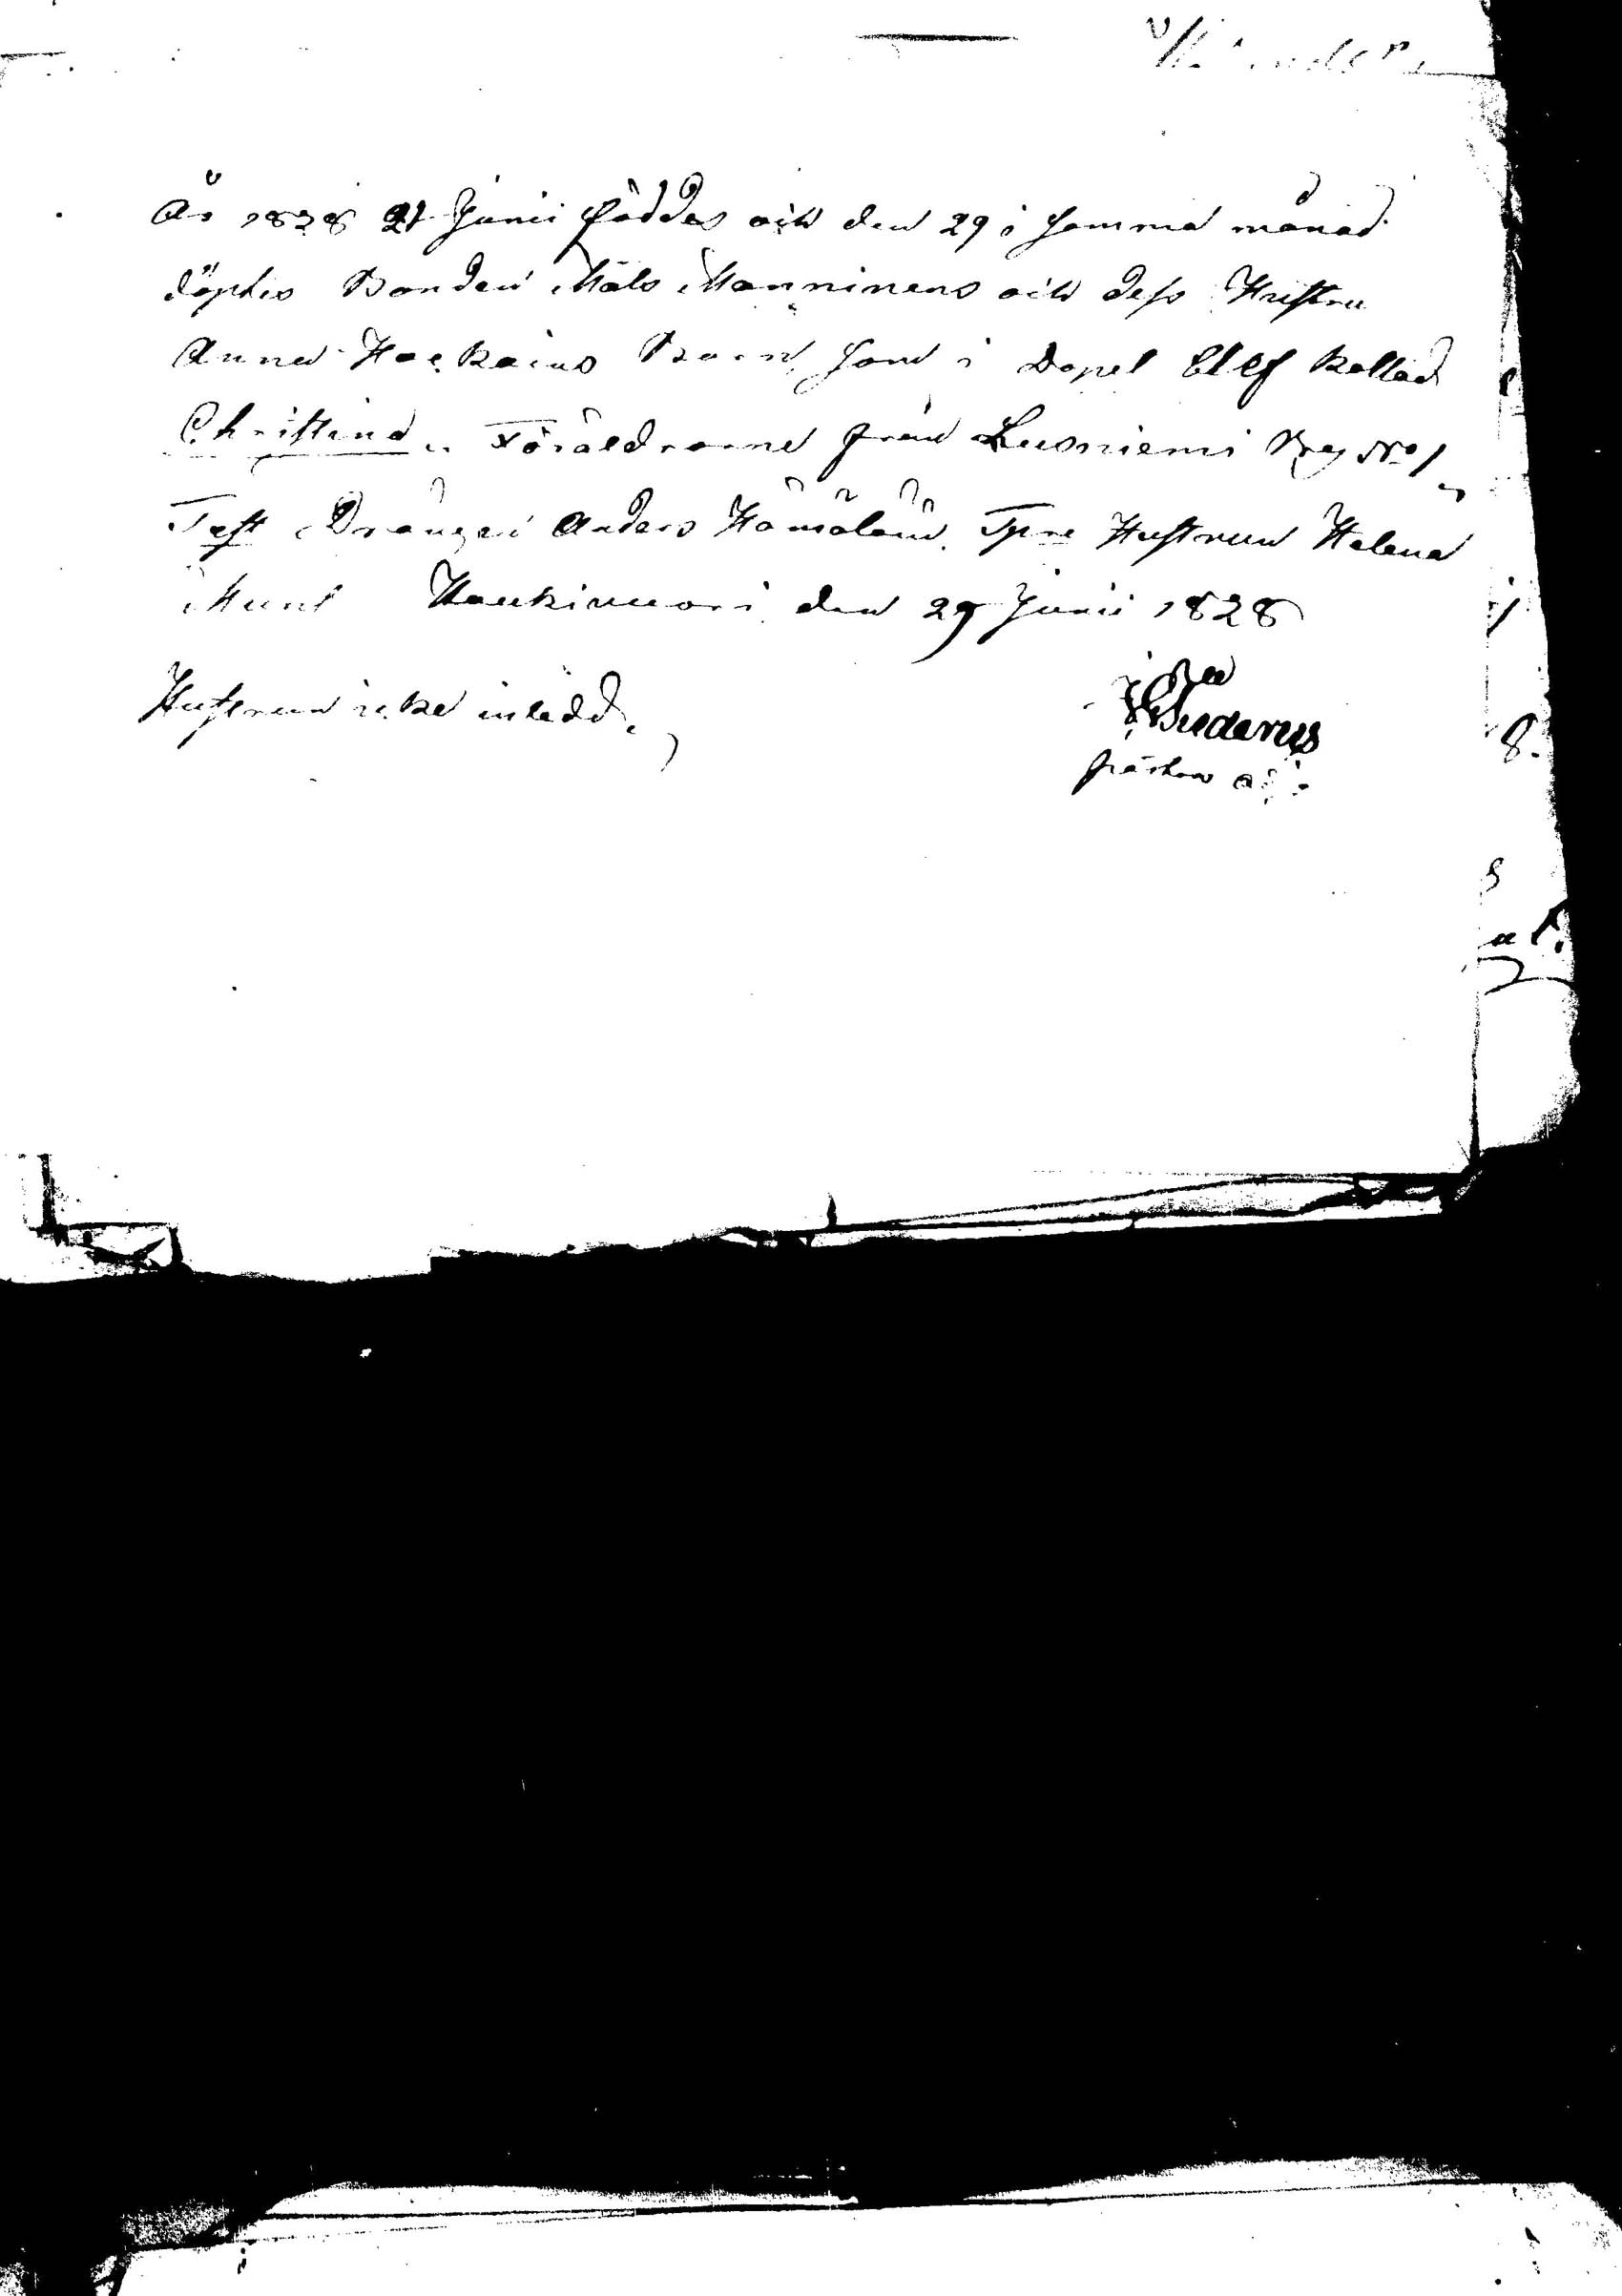 År 1828 21 Junii föddes och den 29 i samma månad
döptes Bonden Mats Manninens och dess Hustru
Anna Hoskains Barn, som i Dopet blef kallad
Christina. Föräldrarne från Lusniemi By No 1
Test Drängen Anders Hämäläin. Tyre Hustrun Helena
Munt Haukivuori den 29 Junii 1828
Hustrun icke inledd.
Buderus